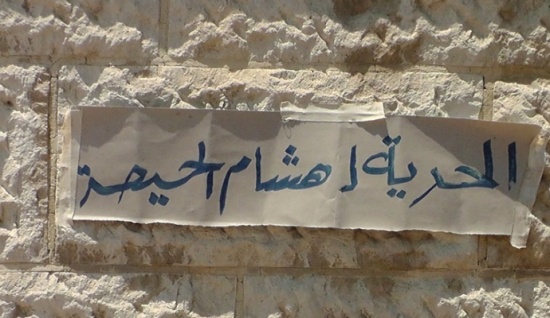 الحرية لـ هشام الحيصة